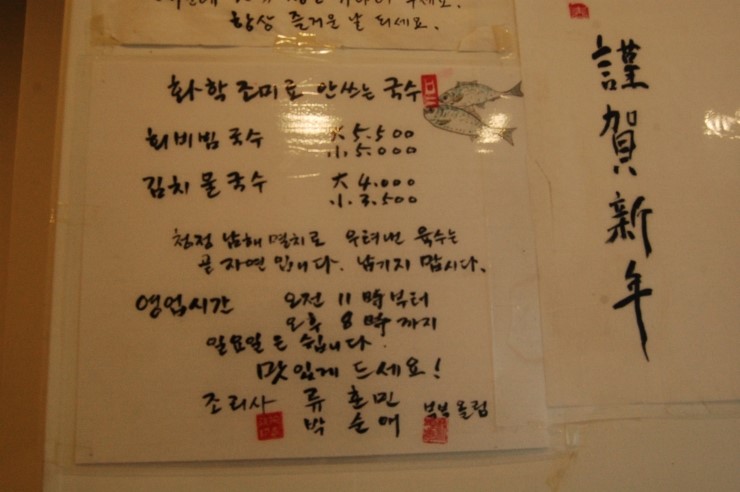 항상 즐거운 날 되세요.
화학 조미료 안쓰는 국수
회비빔국수 大 5.500
小 5.000
김치물국수 大 4.000
小 3.500
청정 남해 멸치로 우려낸 육수는
곧 자연입니다. 남기지 맙시다.
영업시간 오전 11時부터
오후 8時까지
일요일은 쉽니다.
맛있게 드세요!
조리사 류훈민
박순애 부부올림
謹賀新年